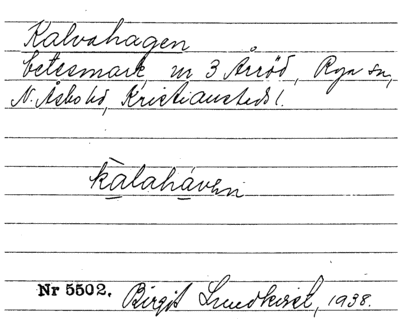 Kalvahagen
betesmark, nr 3 Årröd, Rya sn,
N. Åsbo hd, Kristianstads l.
kàlahávɐn
Nr 5502. Birgit Lundkvist, 1938.